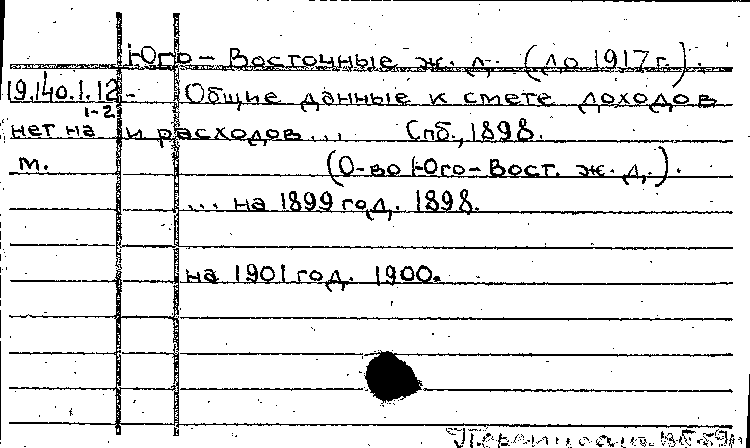 Юго-Восточные ж. д. (до 1917 г.).
19.140.1.12 - Общие данные к смете доходов
1-2
нет на и расходов... Спб., 1898.
м. (О-во Юго-Вост. ж. д.).
... на 1899 год. 1898.
на 1901 год. 1900.